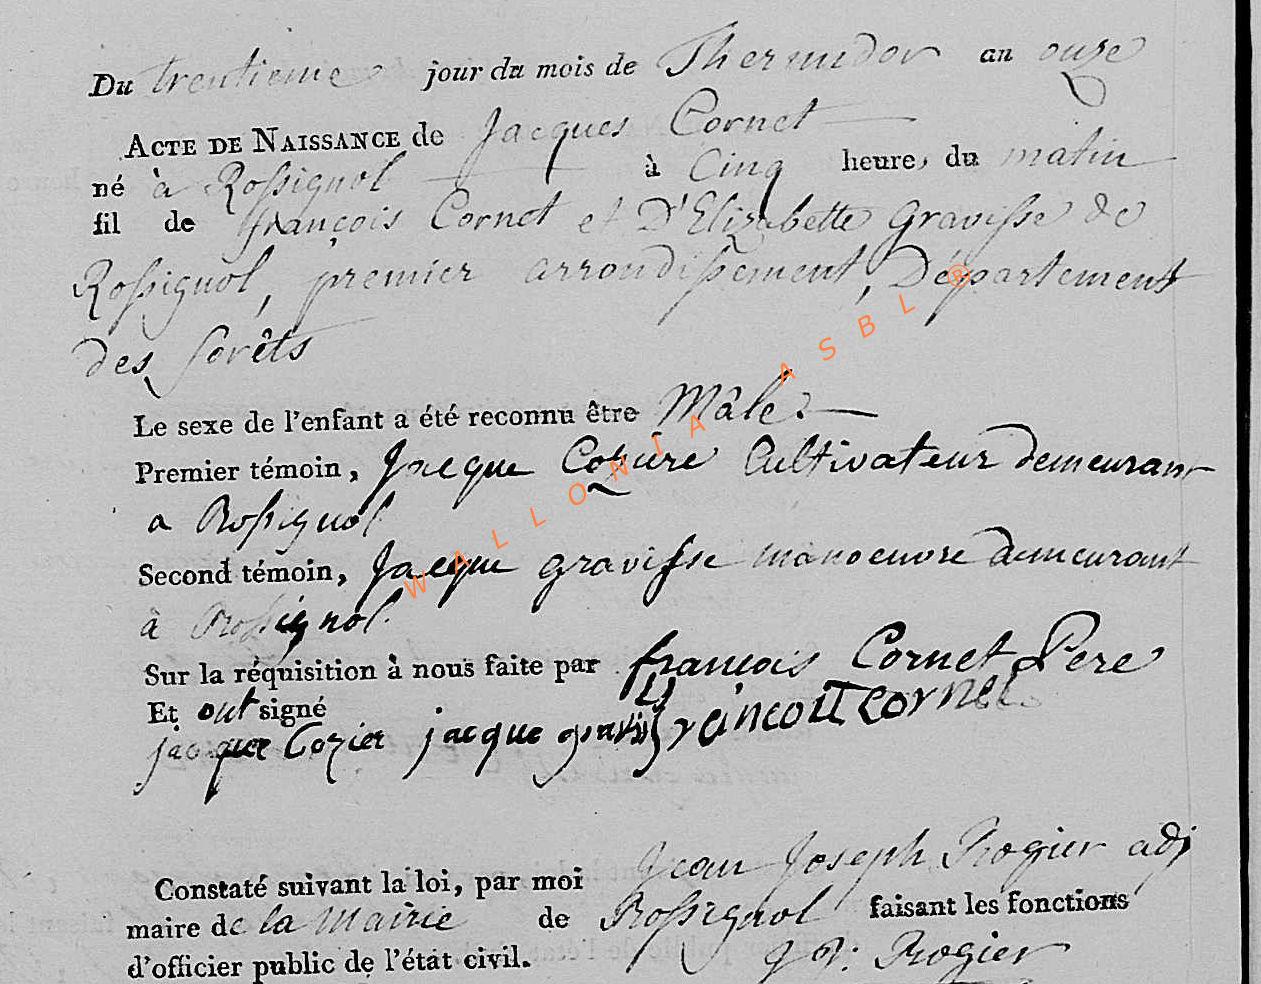 Du trentieme jour du mois de Thermidor an onze
ACTE DE NAISSANCE de Jacques Cornet
né à Rossignol à Cinq heure, du matin
fil de françois Cornet et D'Elizabette Gravisse de
Rossignol, premier arrondissement, Département
des forêts
Le sexe de l'enfant a été reconnu être Mâle.
Premier témoin, Jacque Cultivateur demeurant
a Rossignol
Second témoin, Jacque gravisse manoeuvre demeurant
à Rossignol.
Sur la réquisition à nous faite par françois Cornet Pere
Et ont signé
jacque Cozier jacque gravis francoit cornet
Constaté suivant la loi, par moi Jean Joseph Rogier adj
maire de la Mairie de Rossignol faisant les fonctions
d'officier public de l'état civil. Rogier
WALLONIA ASBL ®